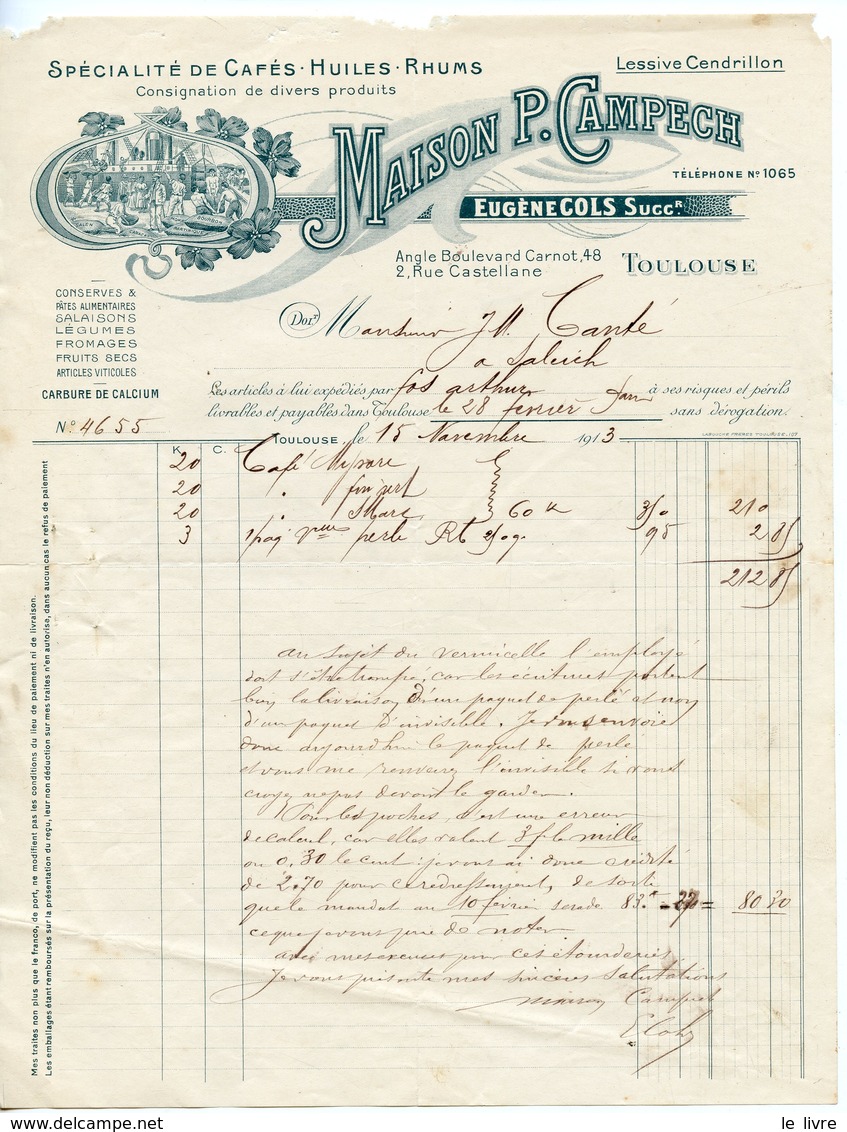 SPÉCIALITÉ DE CAFÉS · HUILES · RHUMS
Consignation de divers produits
Lessive Cendrillon
MAISON P. CAMPECH
TÉLÉPHONE No 1065
EUGÈNE COLS SUCCR.
Angle Boulevard Carnot, 48
2, Rue Castellane
TOULOUSE
BOURBON
MARTINIQUE
CONSERVES &
PÂTES ALIMENTAIRES
SALAISONS
LÉGUMES
FROMAGES
FRUITS SECS
ARTICLES VITICOLES
CARBURE DE CALCIUM
DOIT Monsieur J M. Tanté
a Saleich
Les articles à lui expédiés par fos arthur à ses risques et périls
livrables et payables dans Toulouse le 28 fevrier sans dérogation.
No 4655
TOULOUSE, le 15 Novembre 1913
LABOUCHE FRÈRES TOULOUSE, 107
K. C.
20 Café Mysore
20 "
20 " 60 K 3/50 210
3 1 paq perle 95 2 85
212 85
au sujet du vermicelle l'employé
doit s'être trompé, car les écritures portent
bien la livraison d'un paquet de perlé et non
d'un paquet d'invisible. Je vous envoie
donc aujourd'hui le paquet de perle
et vous me renverrez l'invisible si vous
croyez ne pas devoir le garder.
Pour les poches, c'est une erreur
de calcul, car elles valent 3f le mille
ou 0,30 le cent : je vous ai donc crédité
de 2.70 pour ce redressement, de sorte
que le mandat au 10 fevrier sera de 83. = 80 30
ce que je vous prie de noter
avec mes excuses pour ces étourderies
Je vous présente mes sincères salutations
Maison Campech
E Cols
Mes traites non plus que le franco, de port, ne modifient pas les conditions du lieu de paiement ni de livraison.
Les emballages étant remboursés sur la présentation du reçu, leur non déduction sur mes traites n'en autorisa, dans aucun cas le refus de paiement
le livre